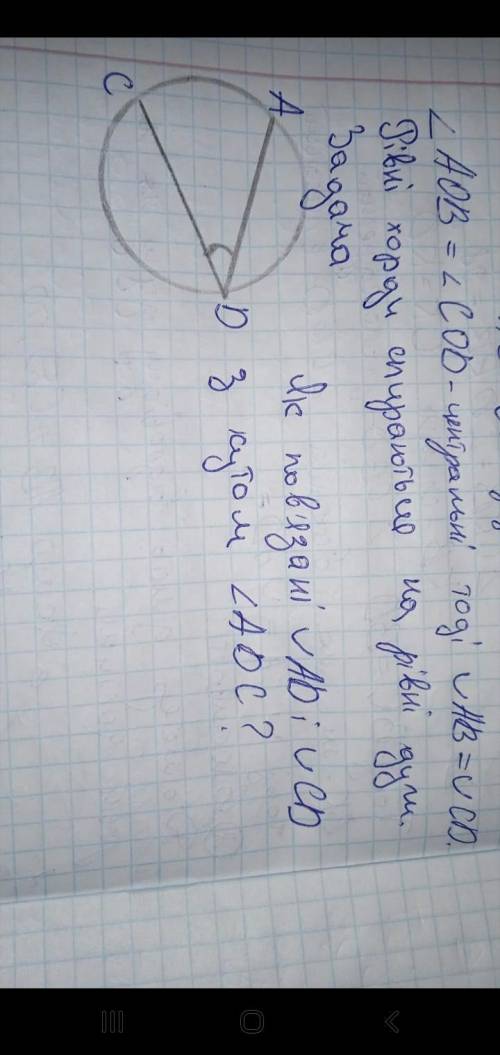 ∠AOB = ∠COD - центральні тоді ∪AB = ∪CD.
Рівні хорди спираються на рівні дуги.
Задача
A
C
D
Як пов'язані ∪AD і ∪CD
з кутом ∠ADC?